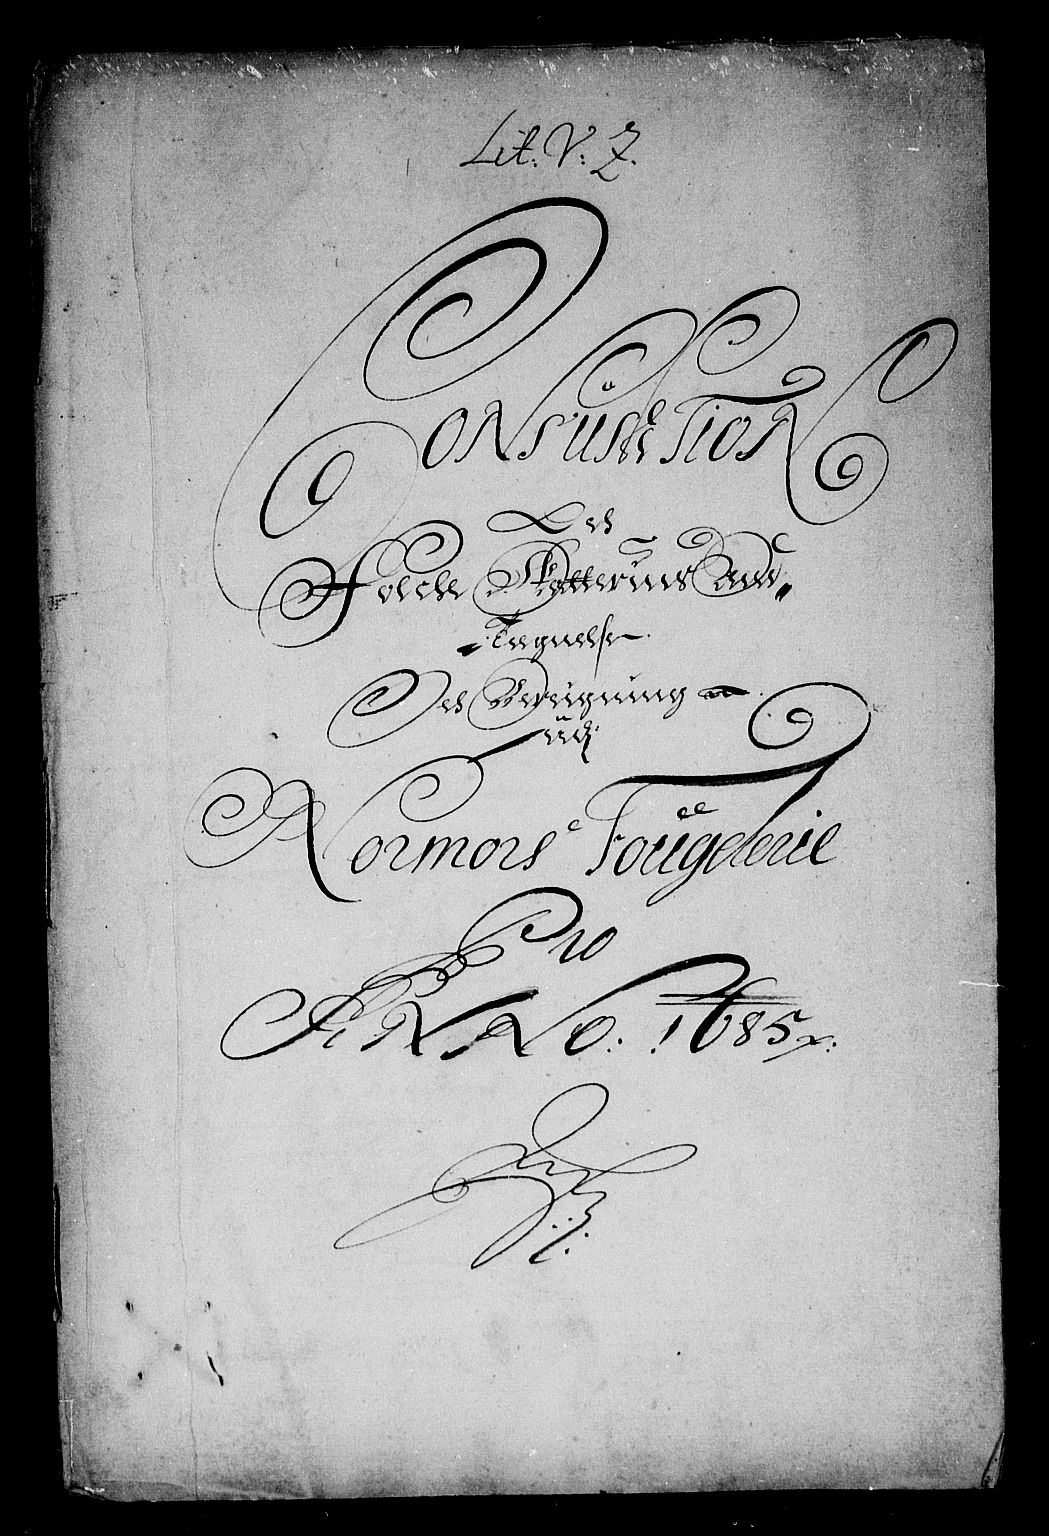 Lit: V: Z.
Consumtion
Och
Folche Skatternis An„
„Tegnelse
Och Berigning
udj
Normors Fougderie
Pro
ANNo. 1685